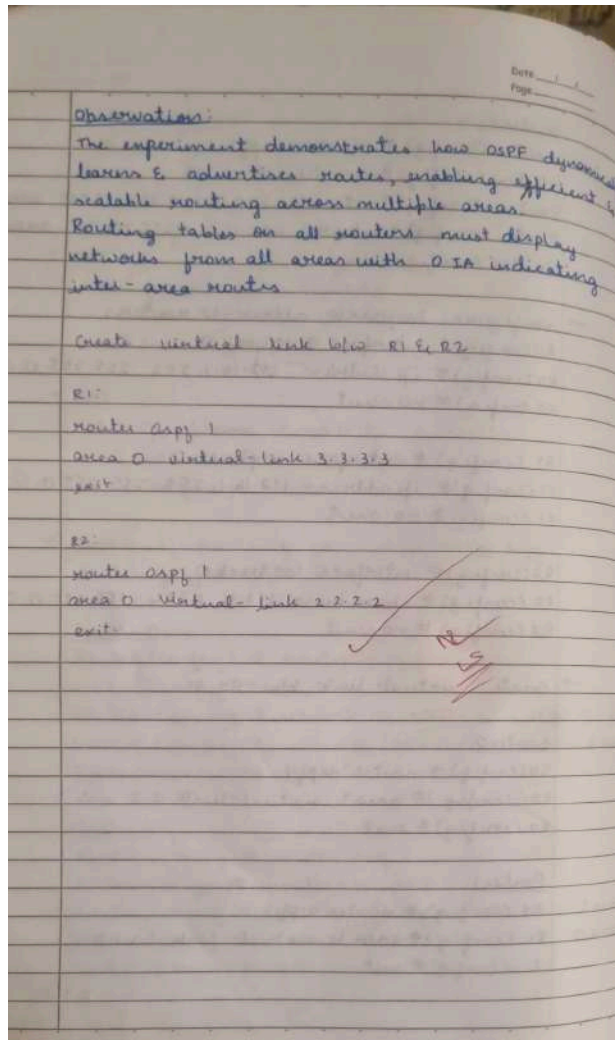 Date
Page
Observation:
The experiment demonstrates how OSPF
learns & advertises routes, enabling efficient &
scalable routing across multiple areas.
Routing tables on all routers must display
networks from all areas with O IA indicating
inter-area routes
Create virtual link b/w R1 & R2
R1:
router ospf 1
area 0 virtual-link 3.3.3.3
exit
R2:
router ospf 1
area 0 virtual-link 2.2.2.2
exit